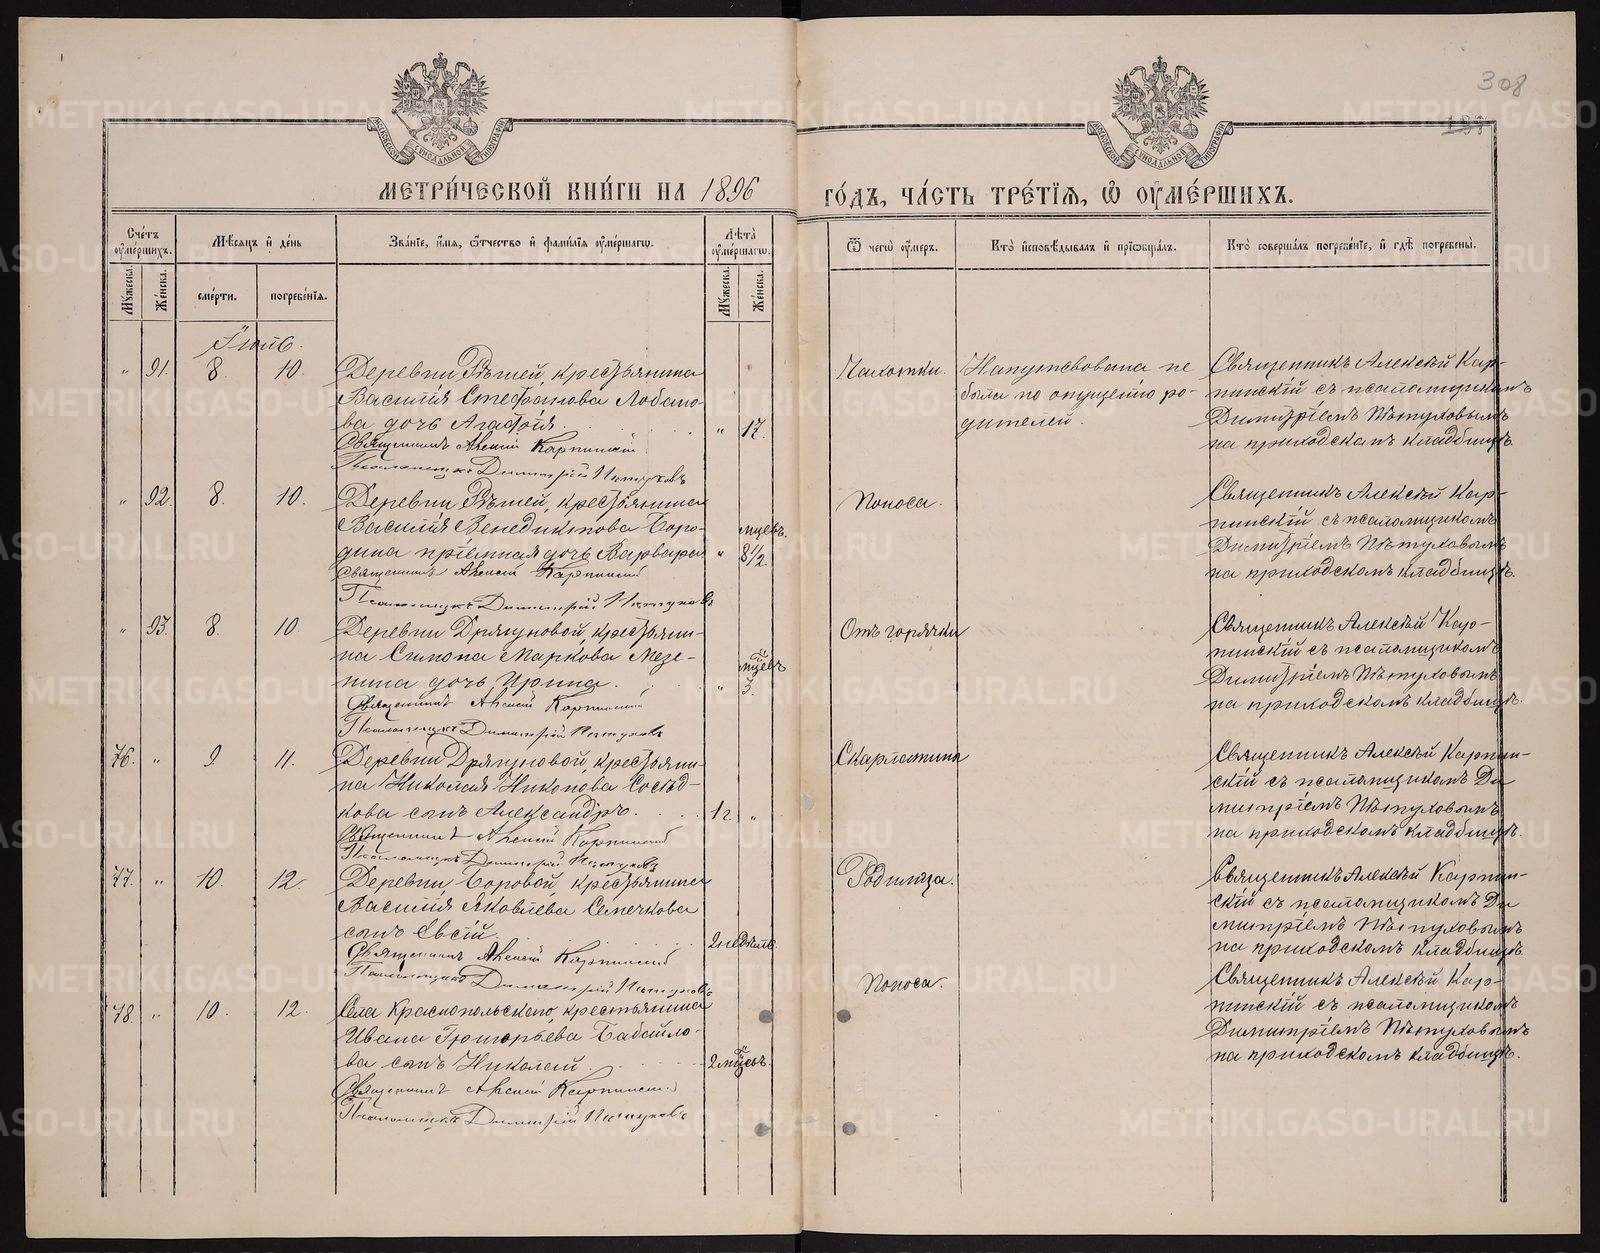 308
МОСКОВСКОЙ СѴНОДАЛЬНОЙ ТИПОГРАФІИ
МОСКОВСКОЙ СѴНОДАЛЬНОЙ ТИПОГРАФІИ
МЕТРИ́ЧЕСКОЙ КНИ́ГИ НА 1896 ГО́ДЪ, ЧА́СТЬ ТРЕ́ТІѦ, Ѡ҆ ОУ҆МЕ́РШИХЪ.
Сче́тъ оу҆ме́ршихъ.
Мѣ́сѧцъ и҆ де́нь
Зва́нїе, и҆́мѧ, ѻ҆́тчество и҆ фами́лїѧ оу҆ме́ршагѡ.
Лѣ́та оу҆ме́ршагѡ.
Ѿ чегѡ̀ оу҆́меръ.
Кто̀ и҆сповѣ́дывалъ и҆ прїѡбща́лъ.
Кто̀ соверша́лъ погребе́нїе, и҆ гдѣ̀ погребены̀.
Мꙋ́жеска. Же́нска.
сме́рти. погребе́нїѧ.
Мꙋ́жеска. Же́нска.
Іюль.
" 91. 8. 10. Деревни Рѣшей, крестьянина
Василія Стефанова Лобано-
ва дочь Агафія. " 17.
Священникъ Алексій Карпинскій
Псаломщикъ Димитрій Пѣтуховъ
Чахотки.
Напутствована не
была по опущенію ро-
дителей.
Священникъ Алексѣй Кар-
пинскій съ псаломщикомъ
Димитріемъ Пѣтуховымъ
на приходскомъ кладбищѣ.
" 92. 8. 10. Деревни Рѣшей, крестьянина
Василія Венедиктова Боро-
дина пріемная дочь Варвара " мцевъ. 8 1/2.
Священникъ Алексій Карпинскій
Псаломщикъ Димитрій Пѣтуховъ
Поноса.
Священникъ Алексѣй Кар-
пинскій съ псаломщикомъ
Димитріемъ Пѣтуховымъ
на приходскомъ кладбищѣ.
" 93. 8. 10. Деревни Дряхновой, крестьяни-
на Симона Маркова Мезе-
нина дочь Ирина. " мцевъ 3.
Священникъ Алексій Карпинскій
Псаломщикъ Димитрій Пѣтуховъ
Отъ горячки
Священникъ Алексѣй Кар-
пинскій съ псаломщикомъ
Димитріемъ Пѣтуховымъ
на приходскомъ кладбищѣ.
76. " 9. 11. Деревни Дряхновой, крестьяни-
на Николая Никонова Сосѣд-
кова сынъ Александръ. 1 г. "
Священникъ Алексій Карпинскій
Псаломщикъ Димитрій Пѣтуховъ
Скарлатина
Священникъ Алексѣй Карпин-
скій съ псаломщикомъ Ди
митріемъ Пѣтуховымъ
на приходскомъ кладбищѣ.
77. " 10. 12. Деревни Боровой, крестьянина
Василія Яковлева Семечкова
сынъ Евсій. 2 недѣль.
Священникъ Алексій Карпинскій
Псаломщикъ Димитрій Пѣтуховъ
Родимца.
Священникъ Алексѣй Карпин-
скій съ псаломщикомъ Ди
митріемъ Пѣтуховымъ
на приходскомъ кладбищѣ.
78. " 10. 12. Села Краснопольскаго, крестьянина
Ивана Григорьева Бабайло-
ва сынъ Николай. 2 мцевъ.
Священникъ Алексій Карпинскій
Псаломщикъ Димитрій Пѣтуховъ
Поноса.
Священникъ Алексѣй Кар-
пинскій съ псаломщикомъ
Димитріемъ Пѣтуховымъ
на приходскомъ кладбищѣ.
METRIKI.GASO-URAL.RU